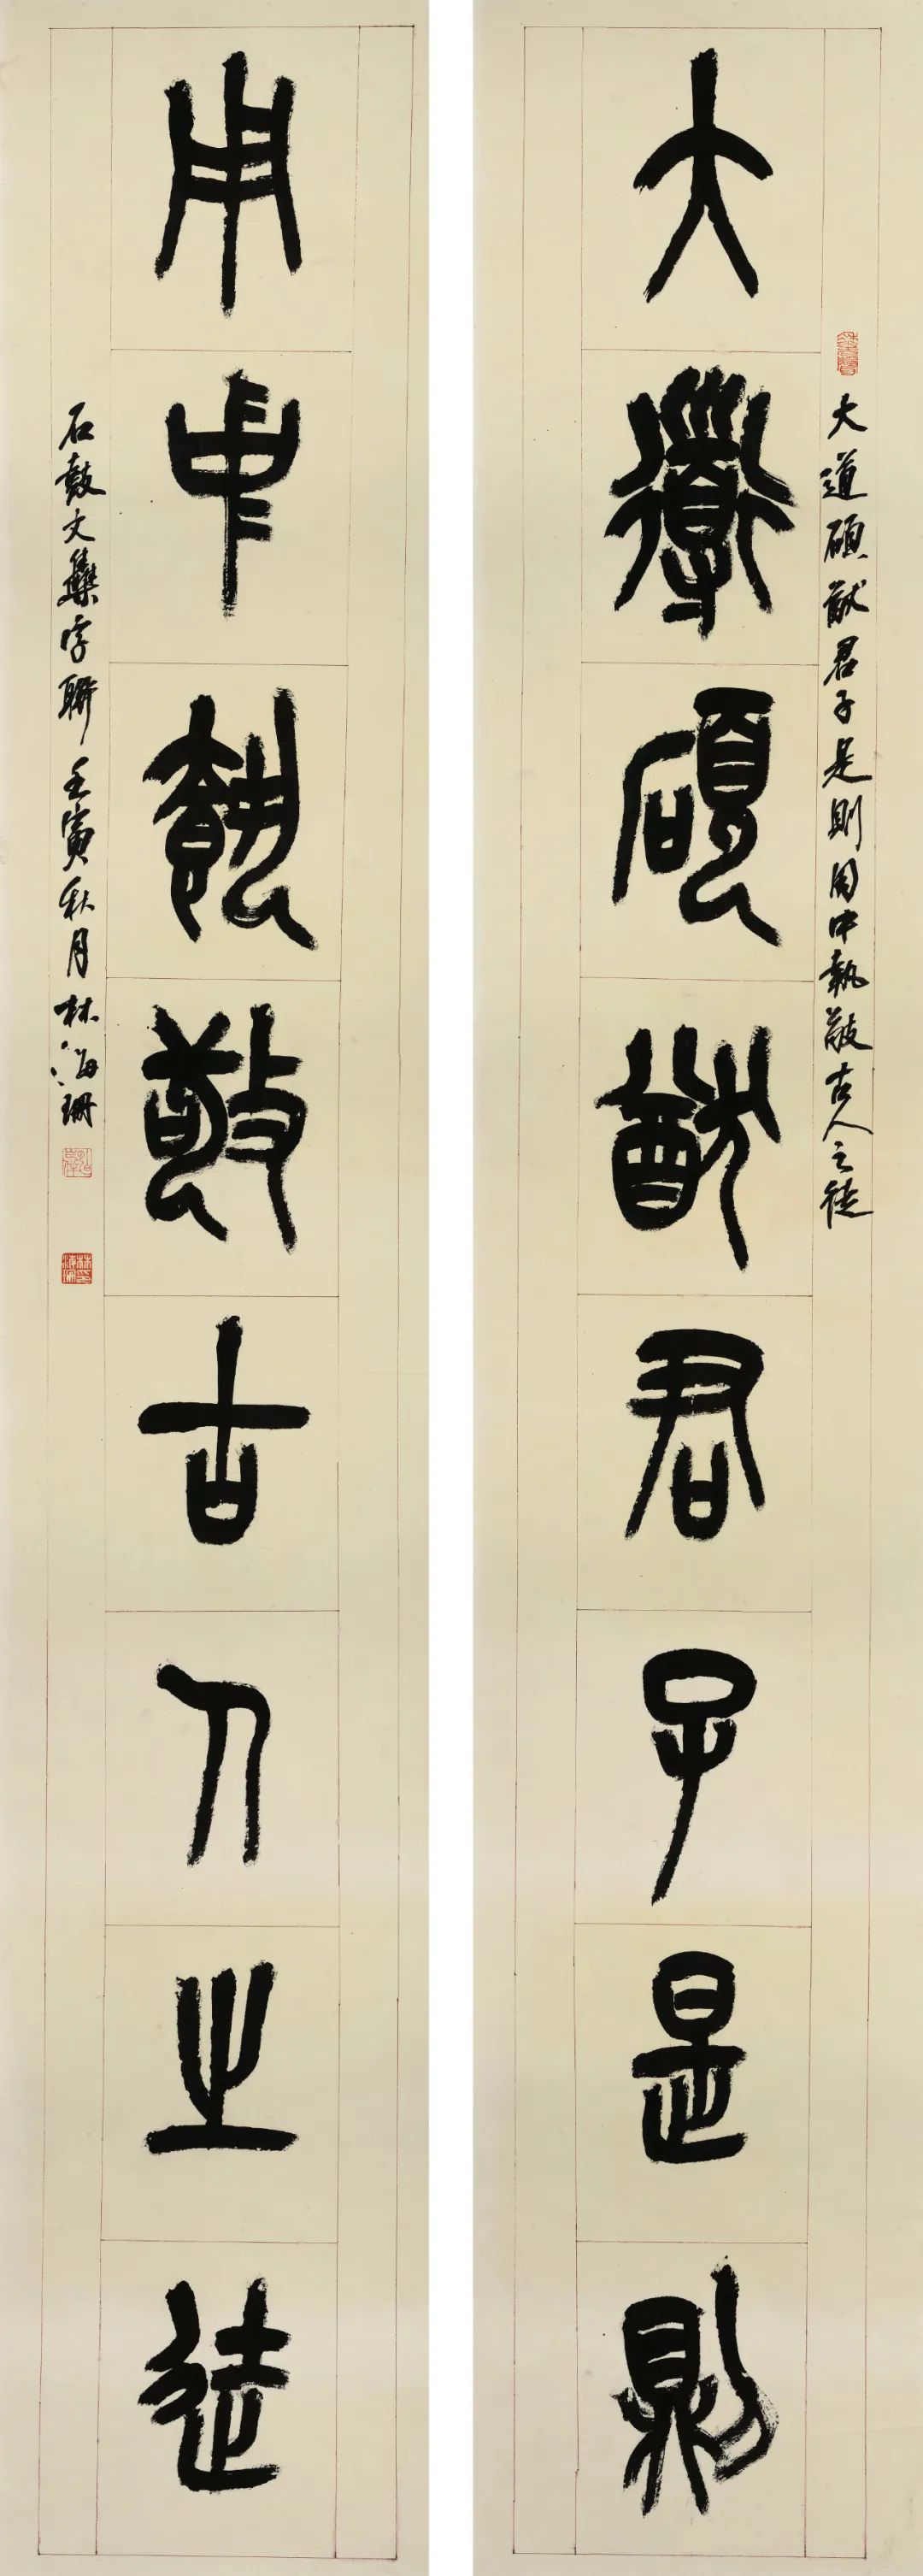 大道碩猷君子是則用中執敬古人之徒
大道碩猷君子是則
用中執敬古人之徒
石鼓文集字聯壬寅秋月林海珊